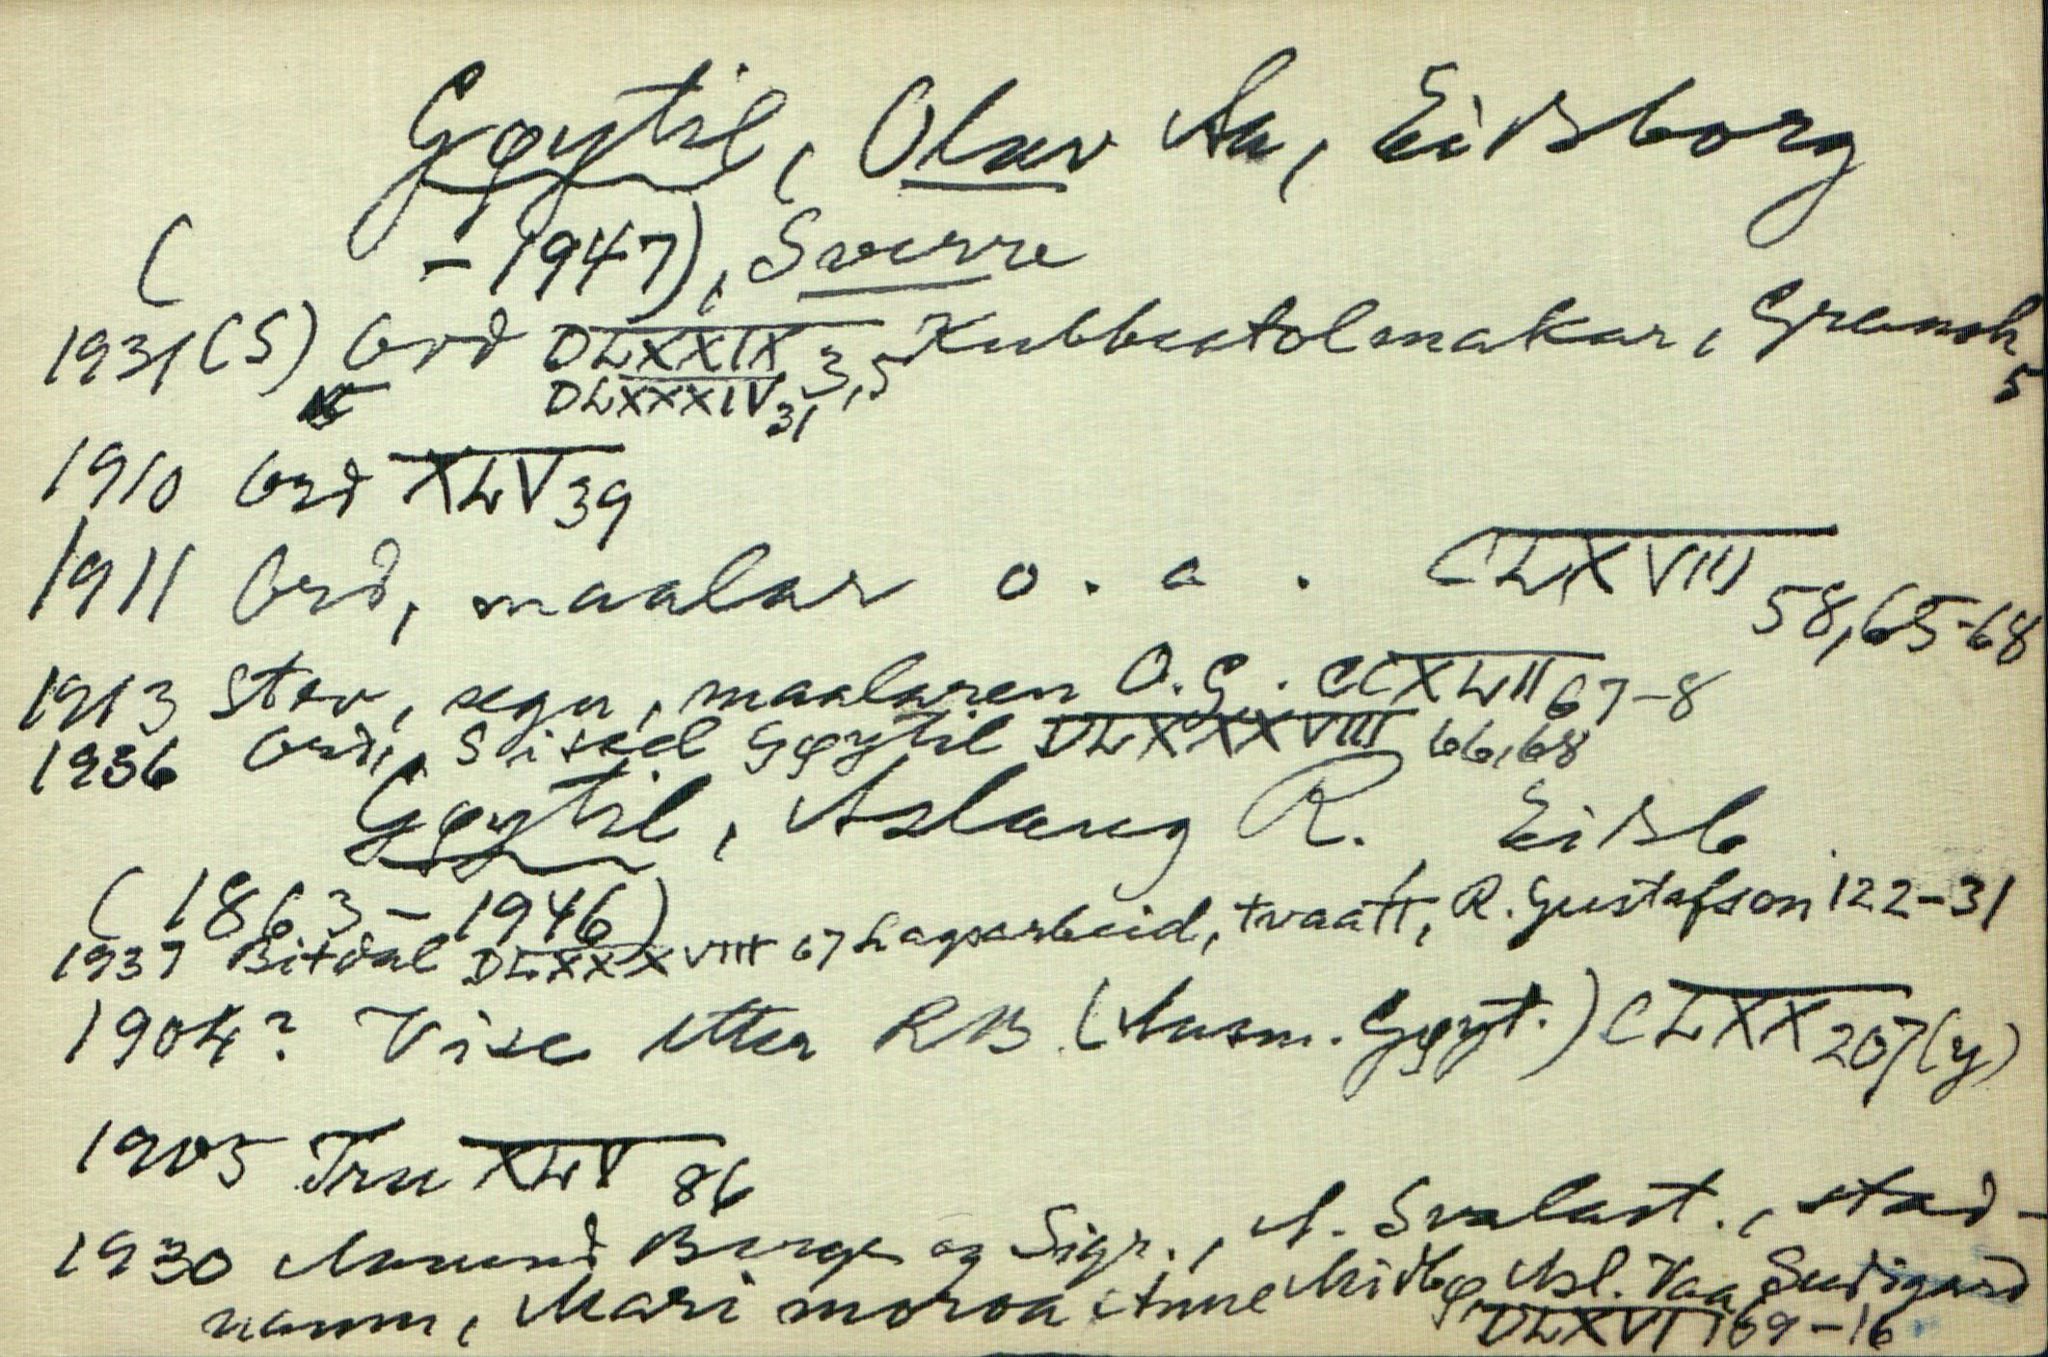 Gøytil, Olav Aa, Eidsborg
( - 1947), Sverre
1931 (S) Ord DLXXIX 3,5 Kubbestolmakar, Gransh. 5
DLXXXIV 31
1910 Ord XLV 39
1911 Ord, maalar o. a. CLXVIII 58,65-68
1913 Stev, segn, maalaren O.G. CCXLII 67-8
1936 Ord, Sissel Gøytil DLXXXVIII 66,68
Gøytil, Aslaug R. Eidsb
(1863-1946)
1937 Bitdal DLXXXVIII 67 Lagsarbeid, tvaatt, R. Gustafson 122-31
1904? Vise etter RB (Aasm. Gøyt.) CLXX 207(y)
1905 Tru XLV 86
1930 Aanund Berge og Sigr., A. Svalast., stad-
namn, Mari moroa Anne Midbø, Asl. Vaa Sudigard
DLXVI 169-16